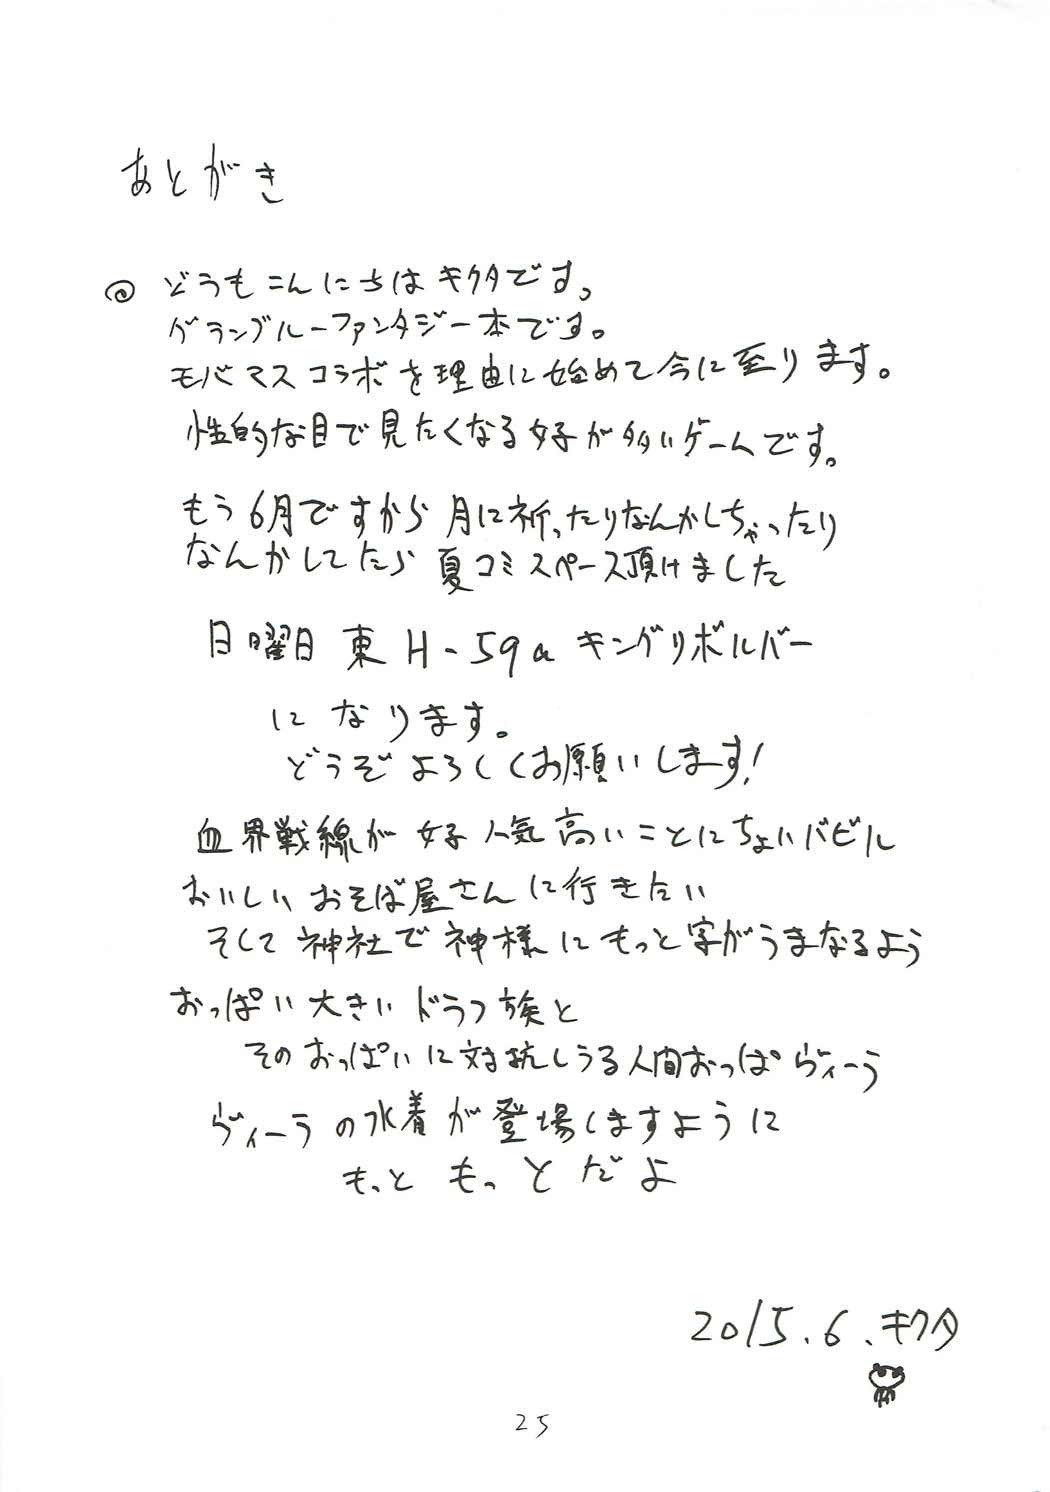 あとがき
◎ どうもこんにちは キクタです。
グランブルーファンタジー本です。
モバマスコラボを理由に始めて今に至ります。
性的な目で見たくなる女子が多いゲームです。
もう6月ですから 月に祈ったりなんかしちゃったり
なんかしてたら 夏コミスペース頂けました
日曜日 東 H-59a キングリボルバー
になります。
どうぞよろしくお願いします!
血界戦線が女子人気高いことにちょいバビル
おいしいおそば屋さんに行きたい
そして神社で神様にもっと字がうまなるよう
おっぱい大きいドラフ族と
そのおっぱいに対抗しうる人間おっぱヴィーラ
ヴィーラの水着が登場しますように
もっと もっとだよ
2015.6.キクタ
25